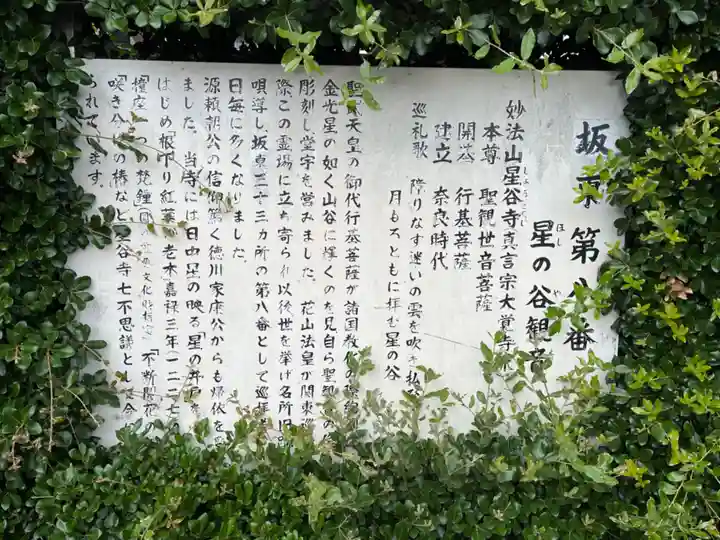 坂東第八番
星の谷観音
ほし や
妙法山星谷寺真言宗大覚寺
しょうこくじ
本尊 聖観世音菩薩
開基 行基菩薩
建立 奈良時代
巡礼歌 障りなす迷いの雲を吹き払
月もろともに拝む星の谷
聖武天皇の御代行基菩薩が諸国教化の際
金光星の如く山谷に輝くのを見自ら聖観
彫刻し堂宇を営みました。花山法皇が関東巡
際この霊場に立ち寄られ以後世を挙げ名所旧
唄導し坂東三十三カ所の第八番として巡拝
日毎に多くなりました。
源頼朝公の信仰篤く徳川家康公からも帰依を
ました。当寺には日中星の映る「星の井戸」を
はじめ「根下り紅葉」老木嘉禄三年(一二二七
「撞座一つの梵鐘」国重要文化財指定「不断開花の
「咲き分けの椿」など星谷寺七不思議として今
られています。